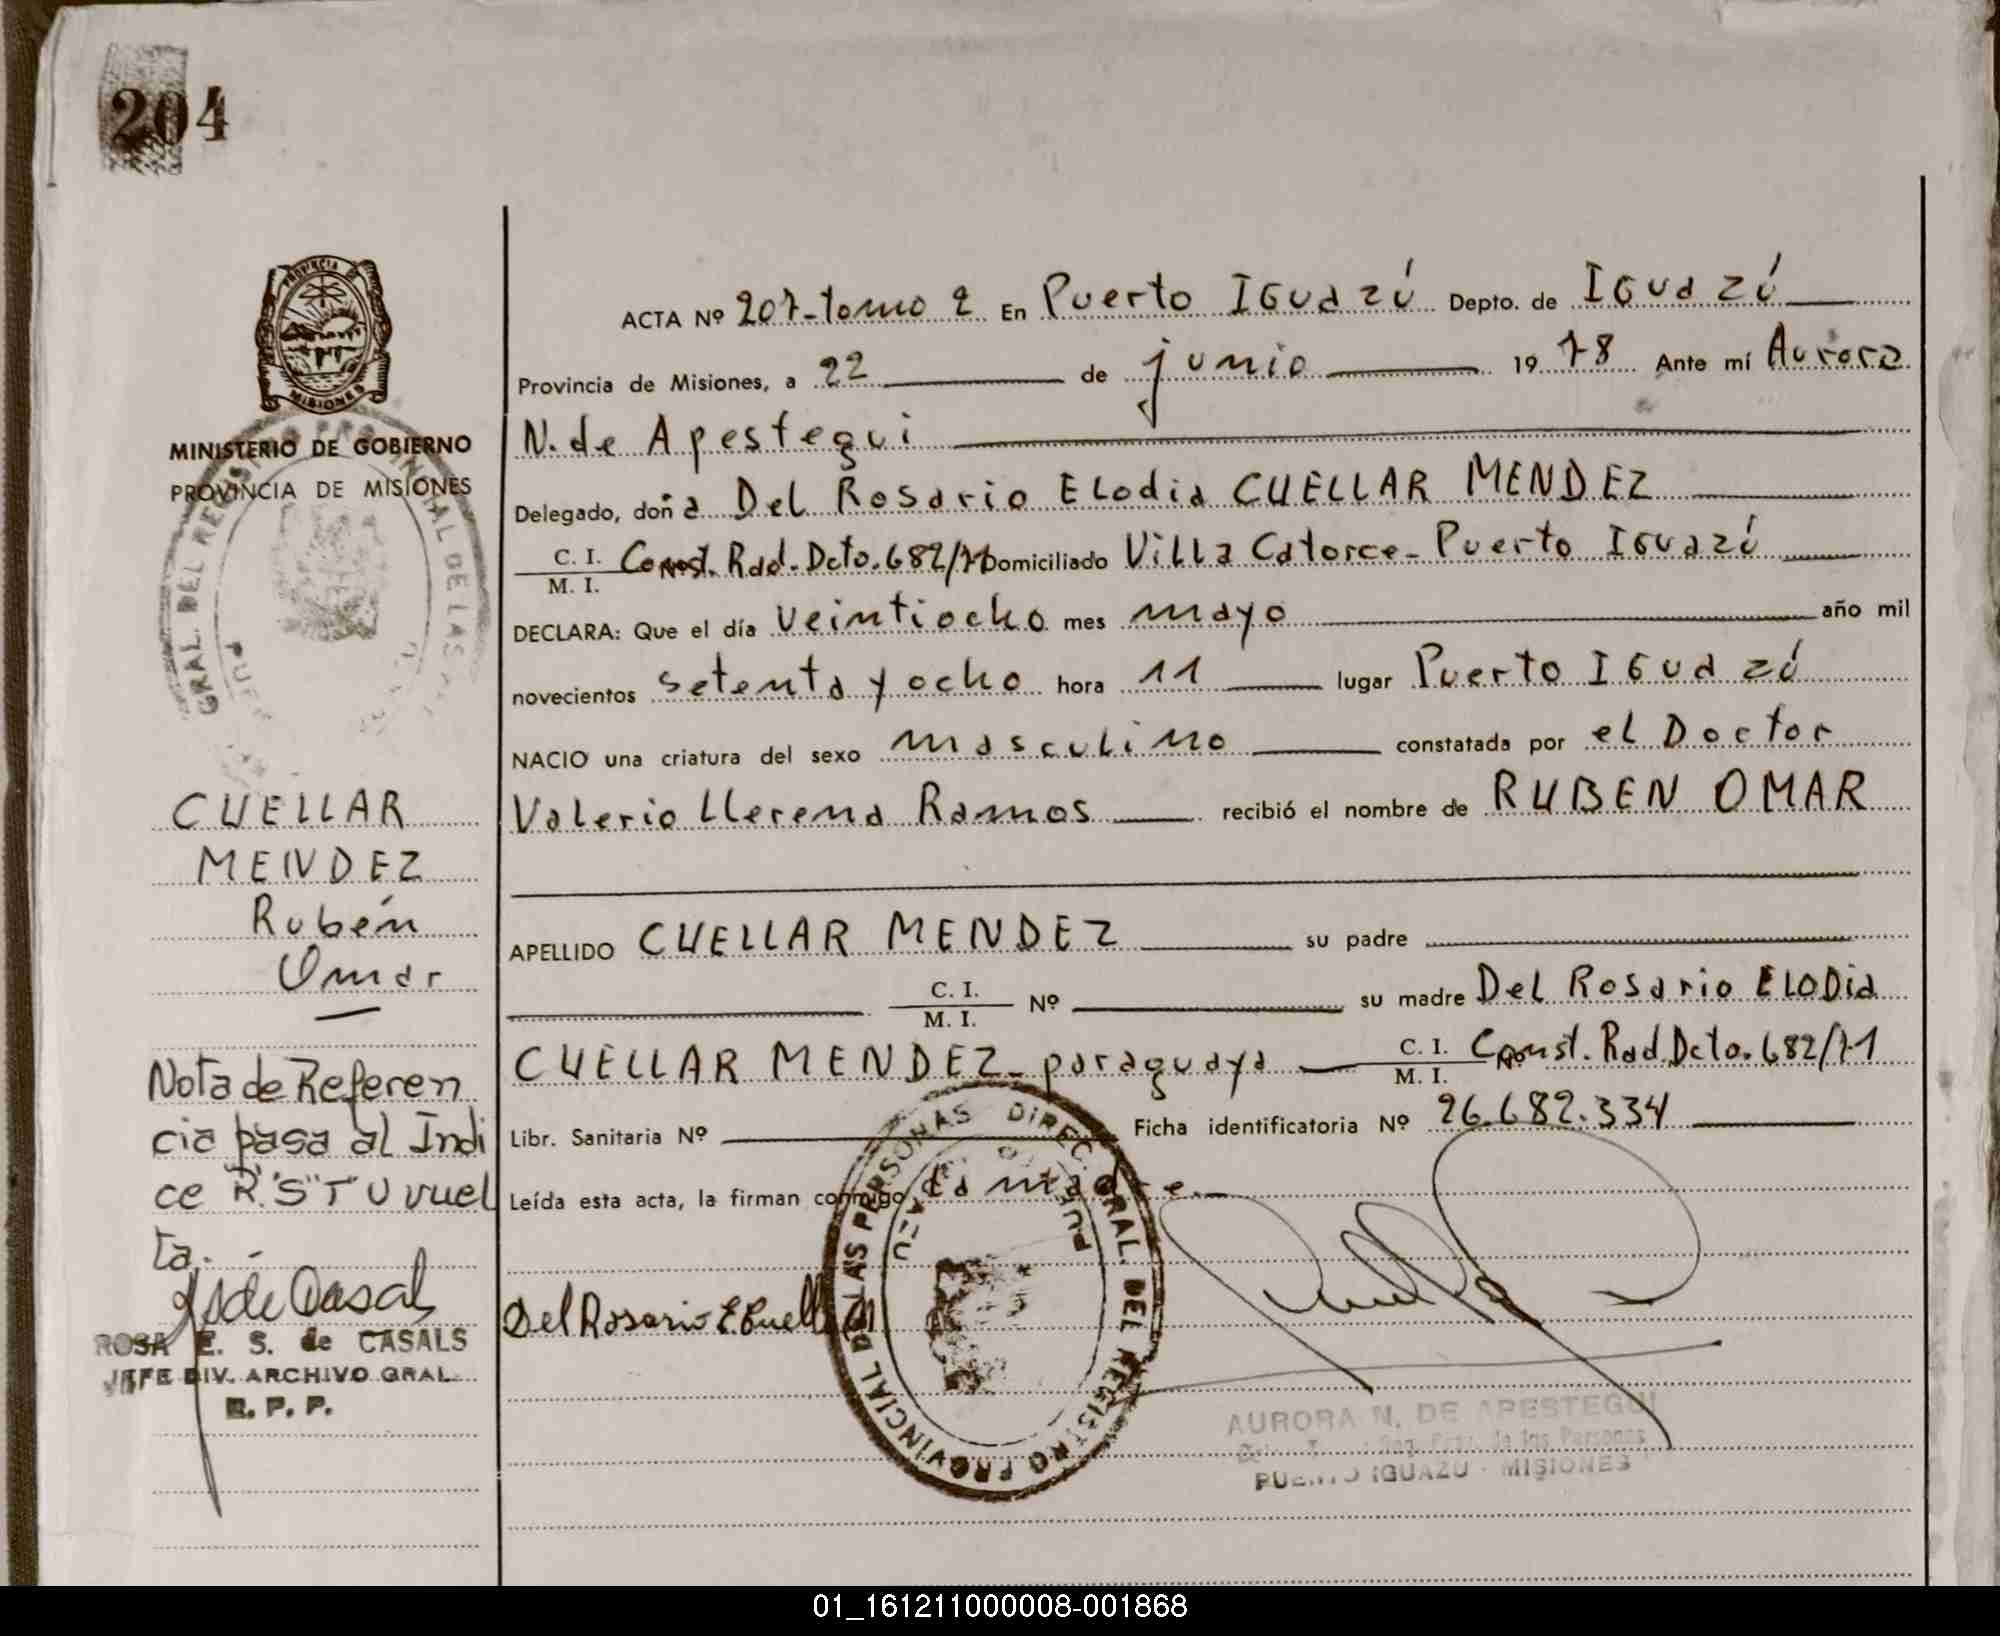 204
PROVINCIA DE
MISIONES
MINISTERIO DE GOBIERNO
PROVINCIA DE MISIONES
GRAL. DEL REGISTRO PROVINCIAL DE LAS
CUELLAR
MENDEZ
Rubén
Omar
Nota de Referen
cia pasa al Indi
ce R."S" T U vuel
ta.
ROSA E. S. de CASALS
JEFE DIV. ARCHIVO GRAL.
R. P. P.
ACTA Nº 207-tomo 2 En Puerto IGuazú Depto. de IGuazú
Provincia de Misiones, a 22 de junio 19 78 Ante mí Aurora
N. de Apestegui
Delegado, doña Del Rosario ELodia CUELLAR MENDEZ
C. I. M. I. Const. Rad. Dcto. 682/71 Domiciliado ViLLa Catorce- Puerto IGuazú
DECLARA: Que el día veintiocho mes mayo año mil
novecientos setenta y ocho hora 11 lugar Puerto IGuazú
NACIO una criatura del sexo mascuLino constatada por eL Doctor
Valerio LLerena Ramos recibió el nombre de RUBEN OMAR
APELLIDO CUELLAR MENDEZ su padre
C. I. M. I. Nº su madre DeL Rosario ELODia
CUELLAR MENDEZ- paraguaya C. I. M. I. Const. Rad. Dcto. 682/71
Libr. Sanitaria Nº Ficha identificatoria Nº 26.682.334
Leída esta acta, la firman conmigo La madre.
Del Rosario E. Cuell
DIREC. GRAL. DEL REGISTRO PROVINCIAL DE LAS PERSONAS
AURORA N. DE APESTEGUI
de las Personas
PUERTO IGUAZU - MISIONES
01_161211000008-001868